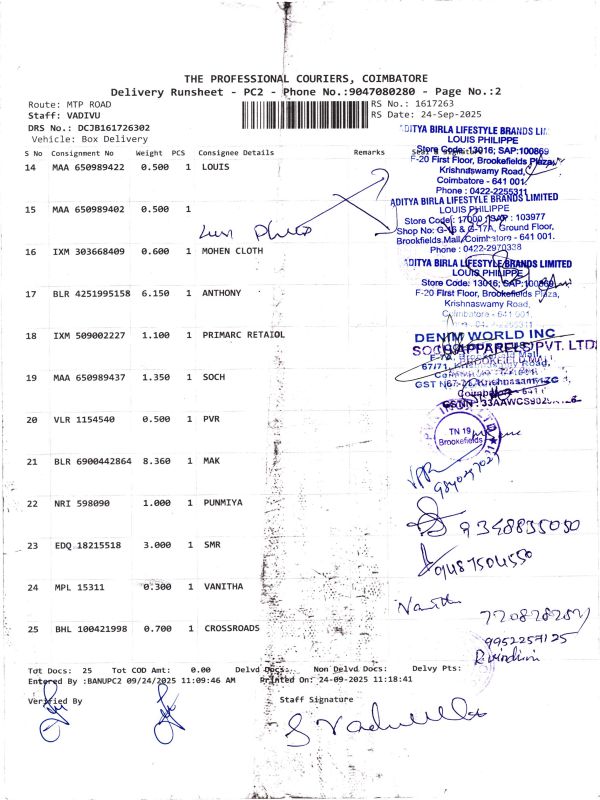 THE PROFESSIONAL COURIERS, COIMBATORE
Delivery Runsheet - PC2 - Phone No.:9047080280 - Page No.:2
Route: MTP ROAD
RS No.: 1617263
Staff: VADIVU
RS Date: 24-Sep-2025
DRS No.: DCJB161726302
Vehicle: Box Delivery
S No Consignment No Weight PCS Consignee Details Remarks
14 MAA 650989422 0.500 1 LOUIS
15 MAA 650989402 0.500 1
16 IXM 303668409 0.600 1 MOHEN CLOTH
17 BLR 4251995158 6.150 1 ANTHONY
18 IXM 509002227 1.100 1 PRIMARC RETAIOL
19 MAA 650989437 1.350 1 SOCH
20 VLR 1154540 0.500 1 PVR
21 BLR 6900442864 8.360 1 MAK
22 NRI 598090 1.000 1 PUNMIYA
23 EDQ 18215518 3.000 1 SMR
24 MPL 15311 0.300 1 VANITHA
25 BHL 100421998 0.700 1 CROSSROADS
ADITYA BIRLA LIFESTYLE BRANDS
LOUIS PHILIPPE
Store Code: 13016; SAP:100869
F-20 First Floor, Brookefields Plaza,
Krishnaswamy Road,
Coimbatore - 641 001.
Phone : 0422-2255311
ADITYA BIRLA LIFESTYLE BRANDS LIMITED
LOUIS PHILIPPE
Store Code: 17000 SAP : 103977
Shop No: G-16 & G-17A, Ground Floor,
Brookfields Mall, Coimbatore - 641 001.
Phone : 0422-2970338
ADITYA BIRLA LIFESTYLE BRANDS LIMITED
LOUIS PHILIPPE
Store Code: 13016; SAP:100869
F-20 First Floor, Brookefields Plaza,
Krishnaswamy Road,
Coimbatore - 641 001.
DENIM WORLD INC
SOCH APPARELS PVT. LTD
TN 19
Brookefields
9348835050
Vanitha
9952257125
Tot Docs: 25 Tot COD Amt: 0.00 Delvd Docs: Non Delvd Docs: Delvy Pts:
Entered By :BANUPC2 09/24/2025 11:09:46 AM Printed On: 24-09-2025 11:18:41
Verified By
Staff Signature